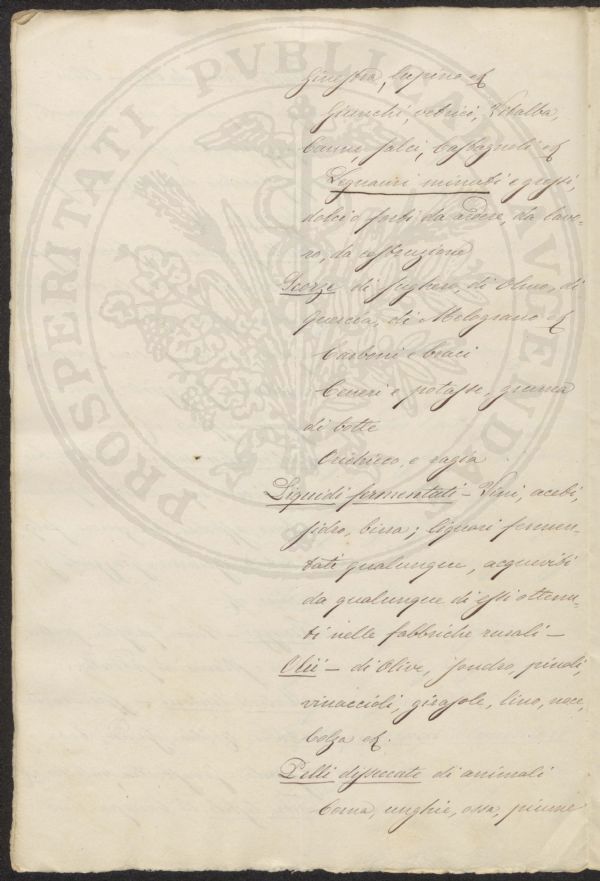 Ginestra, Lupino ec
Giunchi vetrici, Vitalba,
Canne, salci, Castagnoli ec
Legnami minuti e grossi,
dolci o forti da ardere, da lavo-
ro, da costruzione
Scorze di sughero, di Olmo, di
quercia, di Melograno ec
Carboni e braci
Ceneri e potasse, gruma
di botte
Orichicco, e ragia
Liquidi fermentati - Vini, aceti,
sidro, birra; liquori fermen-
tati qualunque, acquaviti
da qualunque di essi ottenu-
ti nelle fabbriche rurali -
Olii - di Olive, pinoli,
vinaccioli, girasole, lino, noce,
Colza ec.
Pelli disseccate di animali
Corna, unghie, ossa, piume
PROSPERITATI PVBLICAE AVGENDAE